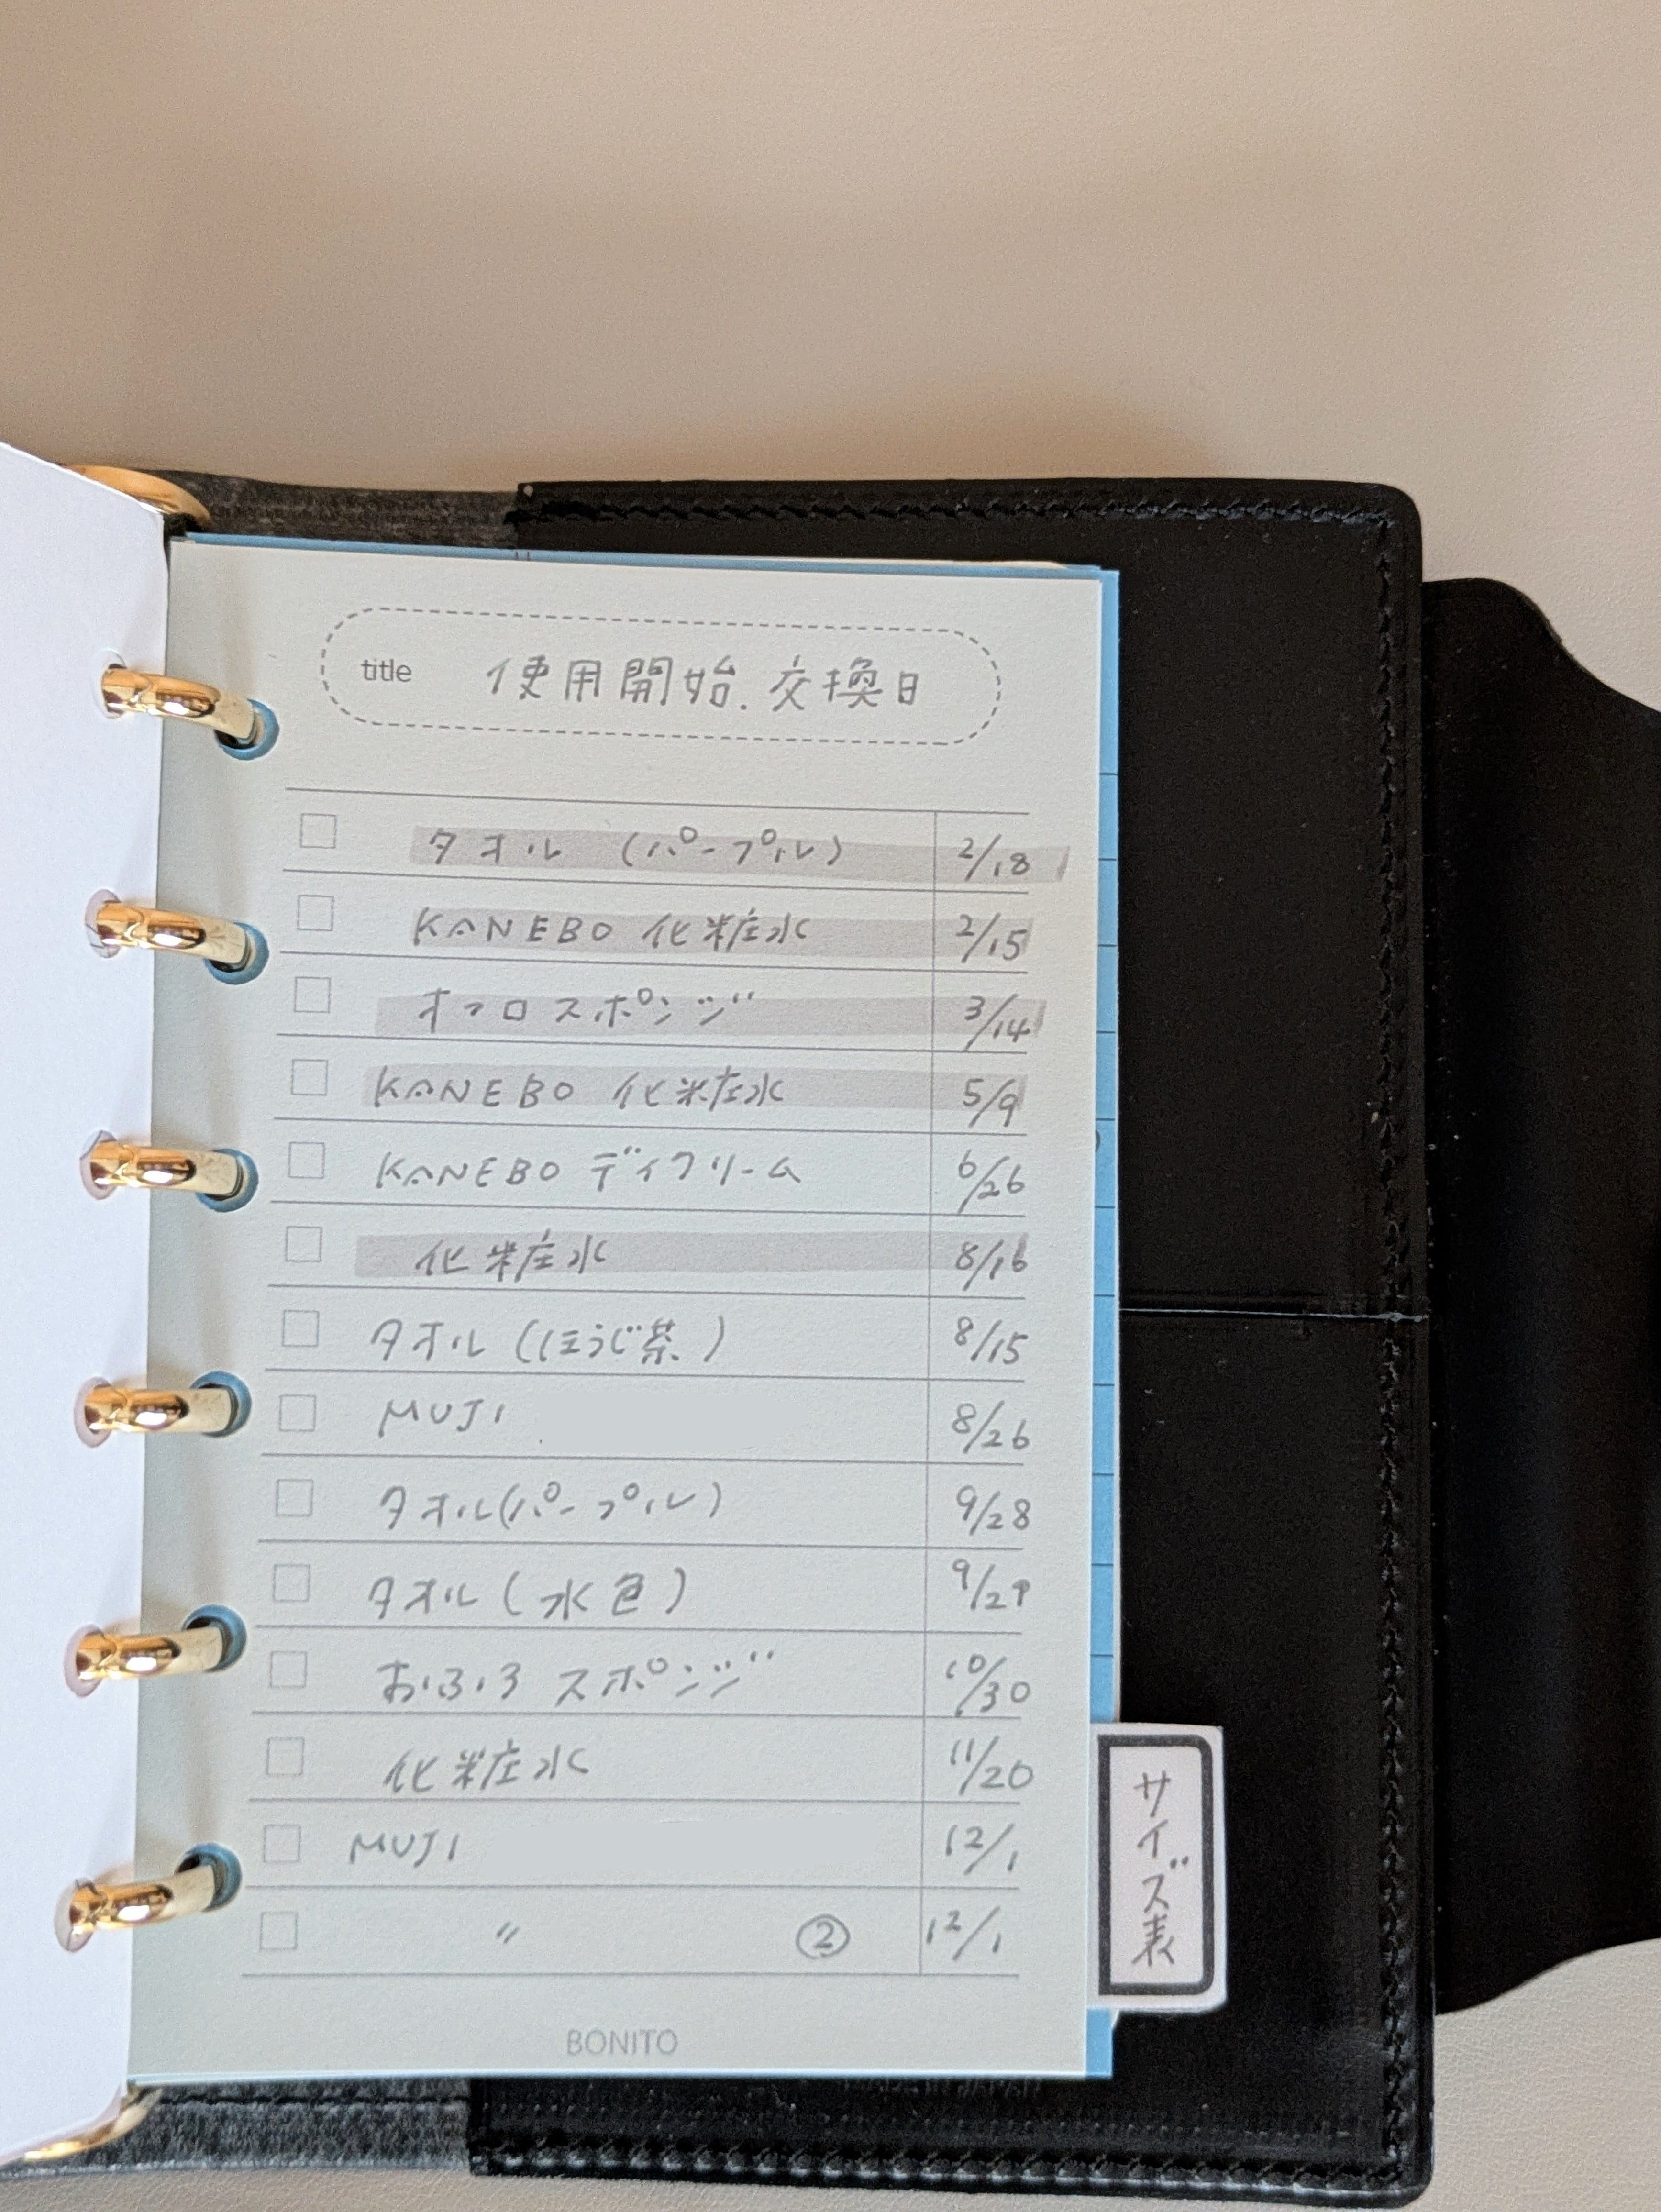 title 使用開始.交換日
タオル (パープル) 2/18
KANEBO 化粧水 2/15
オフロスポンジ 3/14
KANEBO 化粧水 5/9
KANEBO デイクリーム 6/26
化粧水 8/16
タオル (ほうじ茶) 8/15
MUJI 8/26
タオル(パープル) 9/28
タオル (水色) 9/29
おふろ スポンジ 10/30
化粧水 11/20
MUJI 12/1
〃 ② 12/1
BONITO
サイズ表